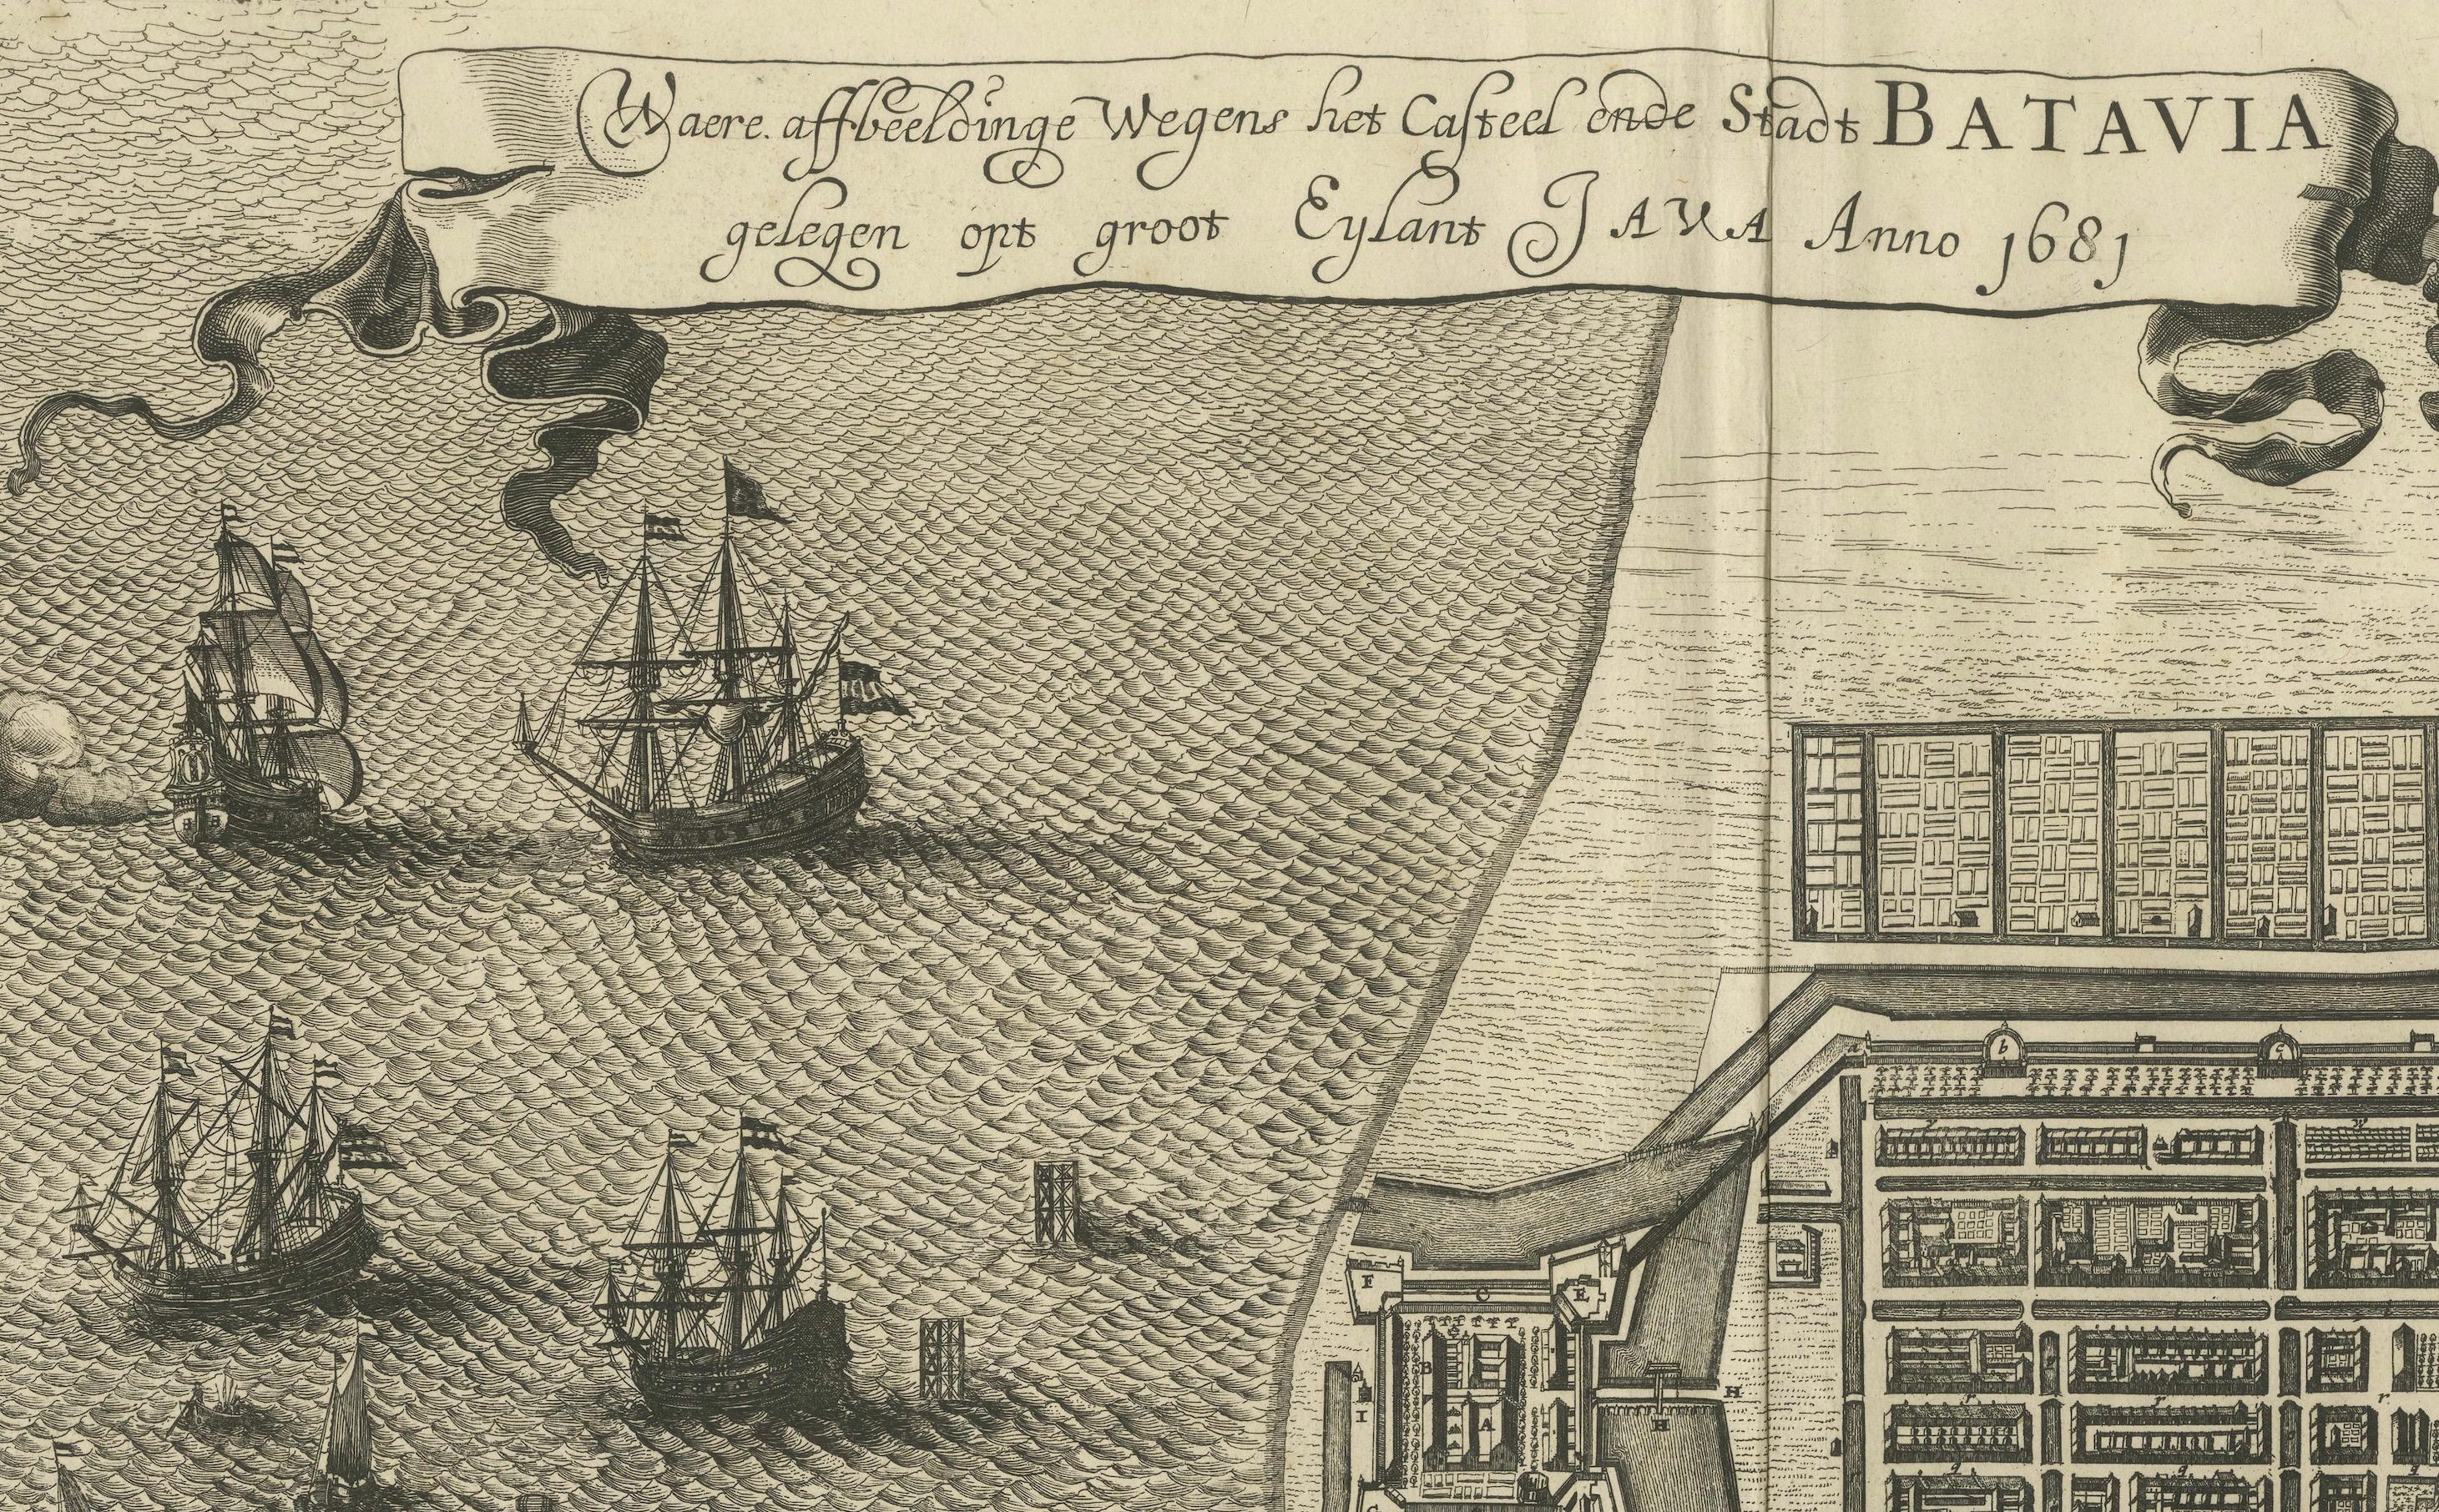 Waere. affbeeldinge Wegens het Casteel ende Stadt BATAVIA
gelegen opt groot Eylant JAVA Anno 1681
a
b
c
F
C
E
B
A
I
H
H
r
r
r
q
q
q